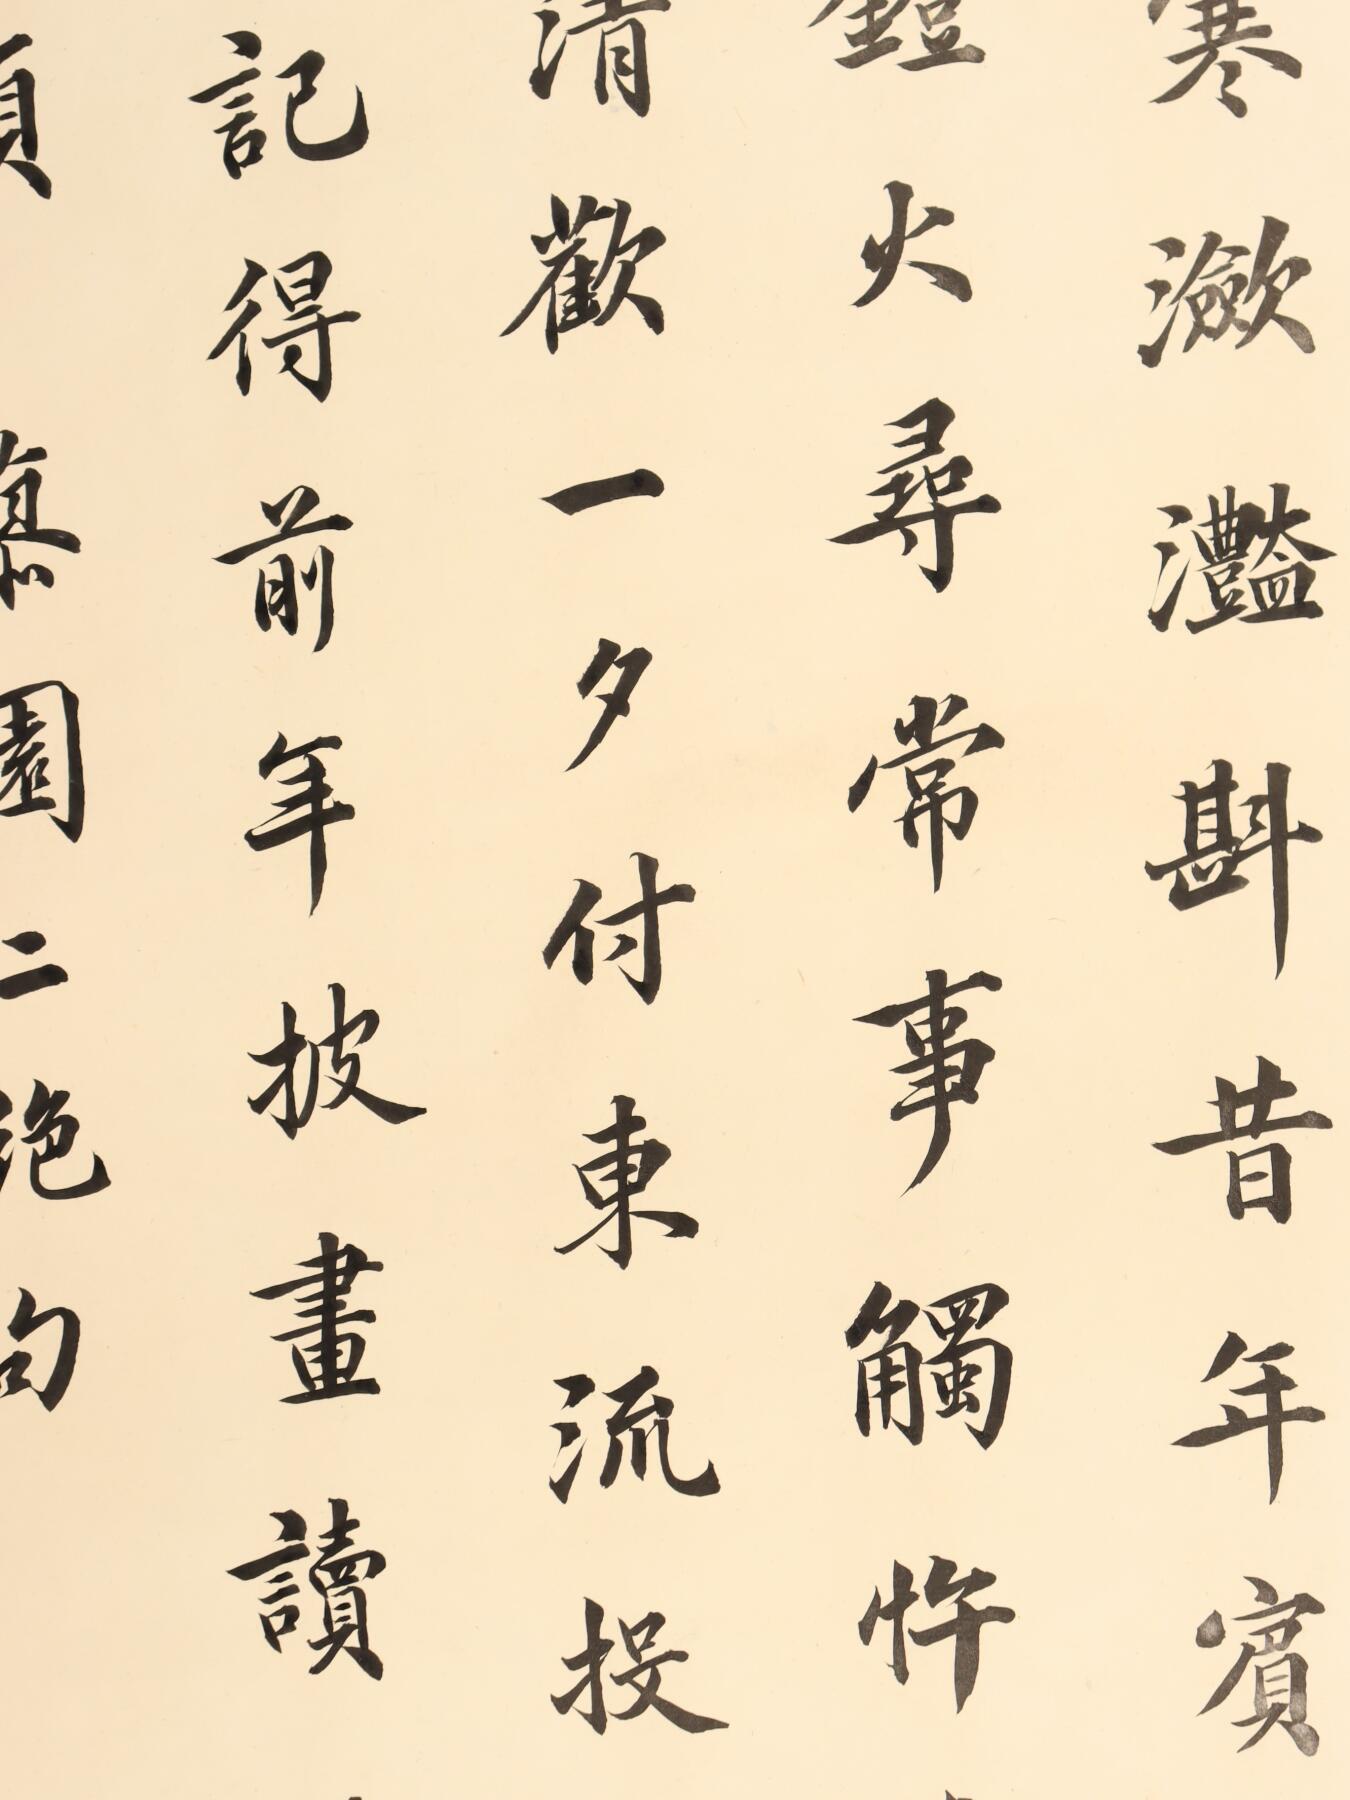 寒瀲灩斟昔年賓
鐙火尋常事觸忤
清歡一夕付東流投
記得前年披畫讀
園二絕句